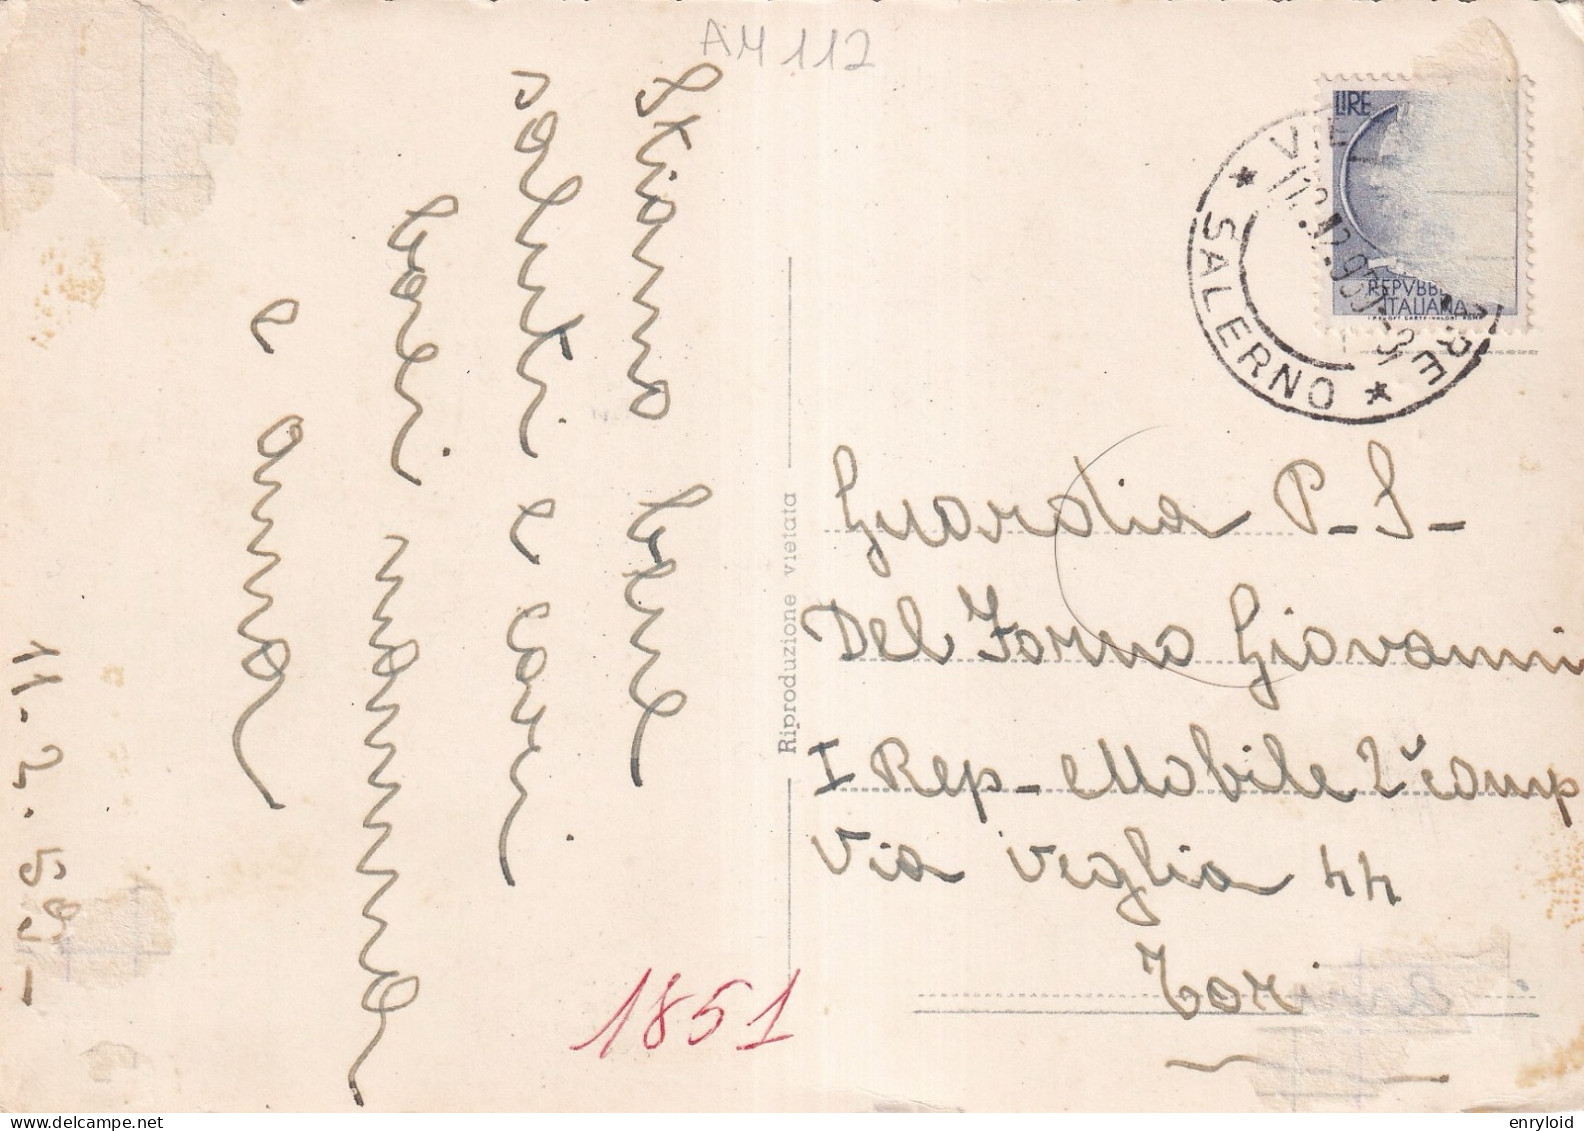 AM 112
Stiamo bene
saluti e cari
baci mamma
e anna
11-2.59-
Riproduzione vietata
1851
LIRE
REPVBB
ITALIANA
VIE
RE
SALERNO
Guardia P-S-
Del Forno Giovanni
I Rep- Mobile 2° comp
Via Veglia 44
Tori
enryloid